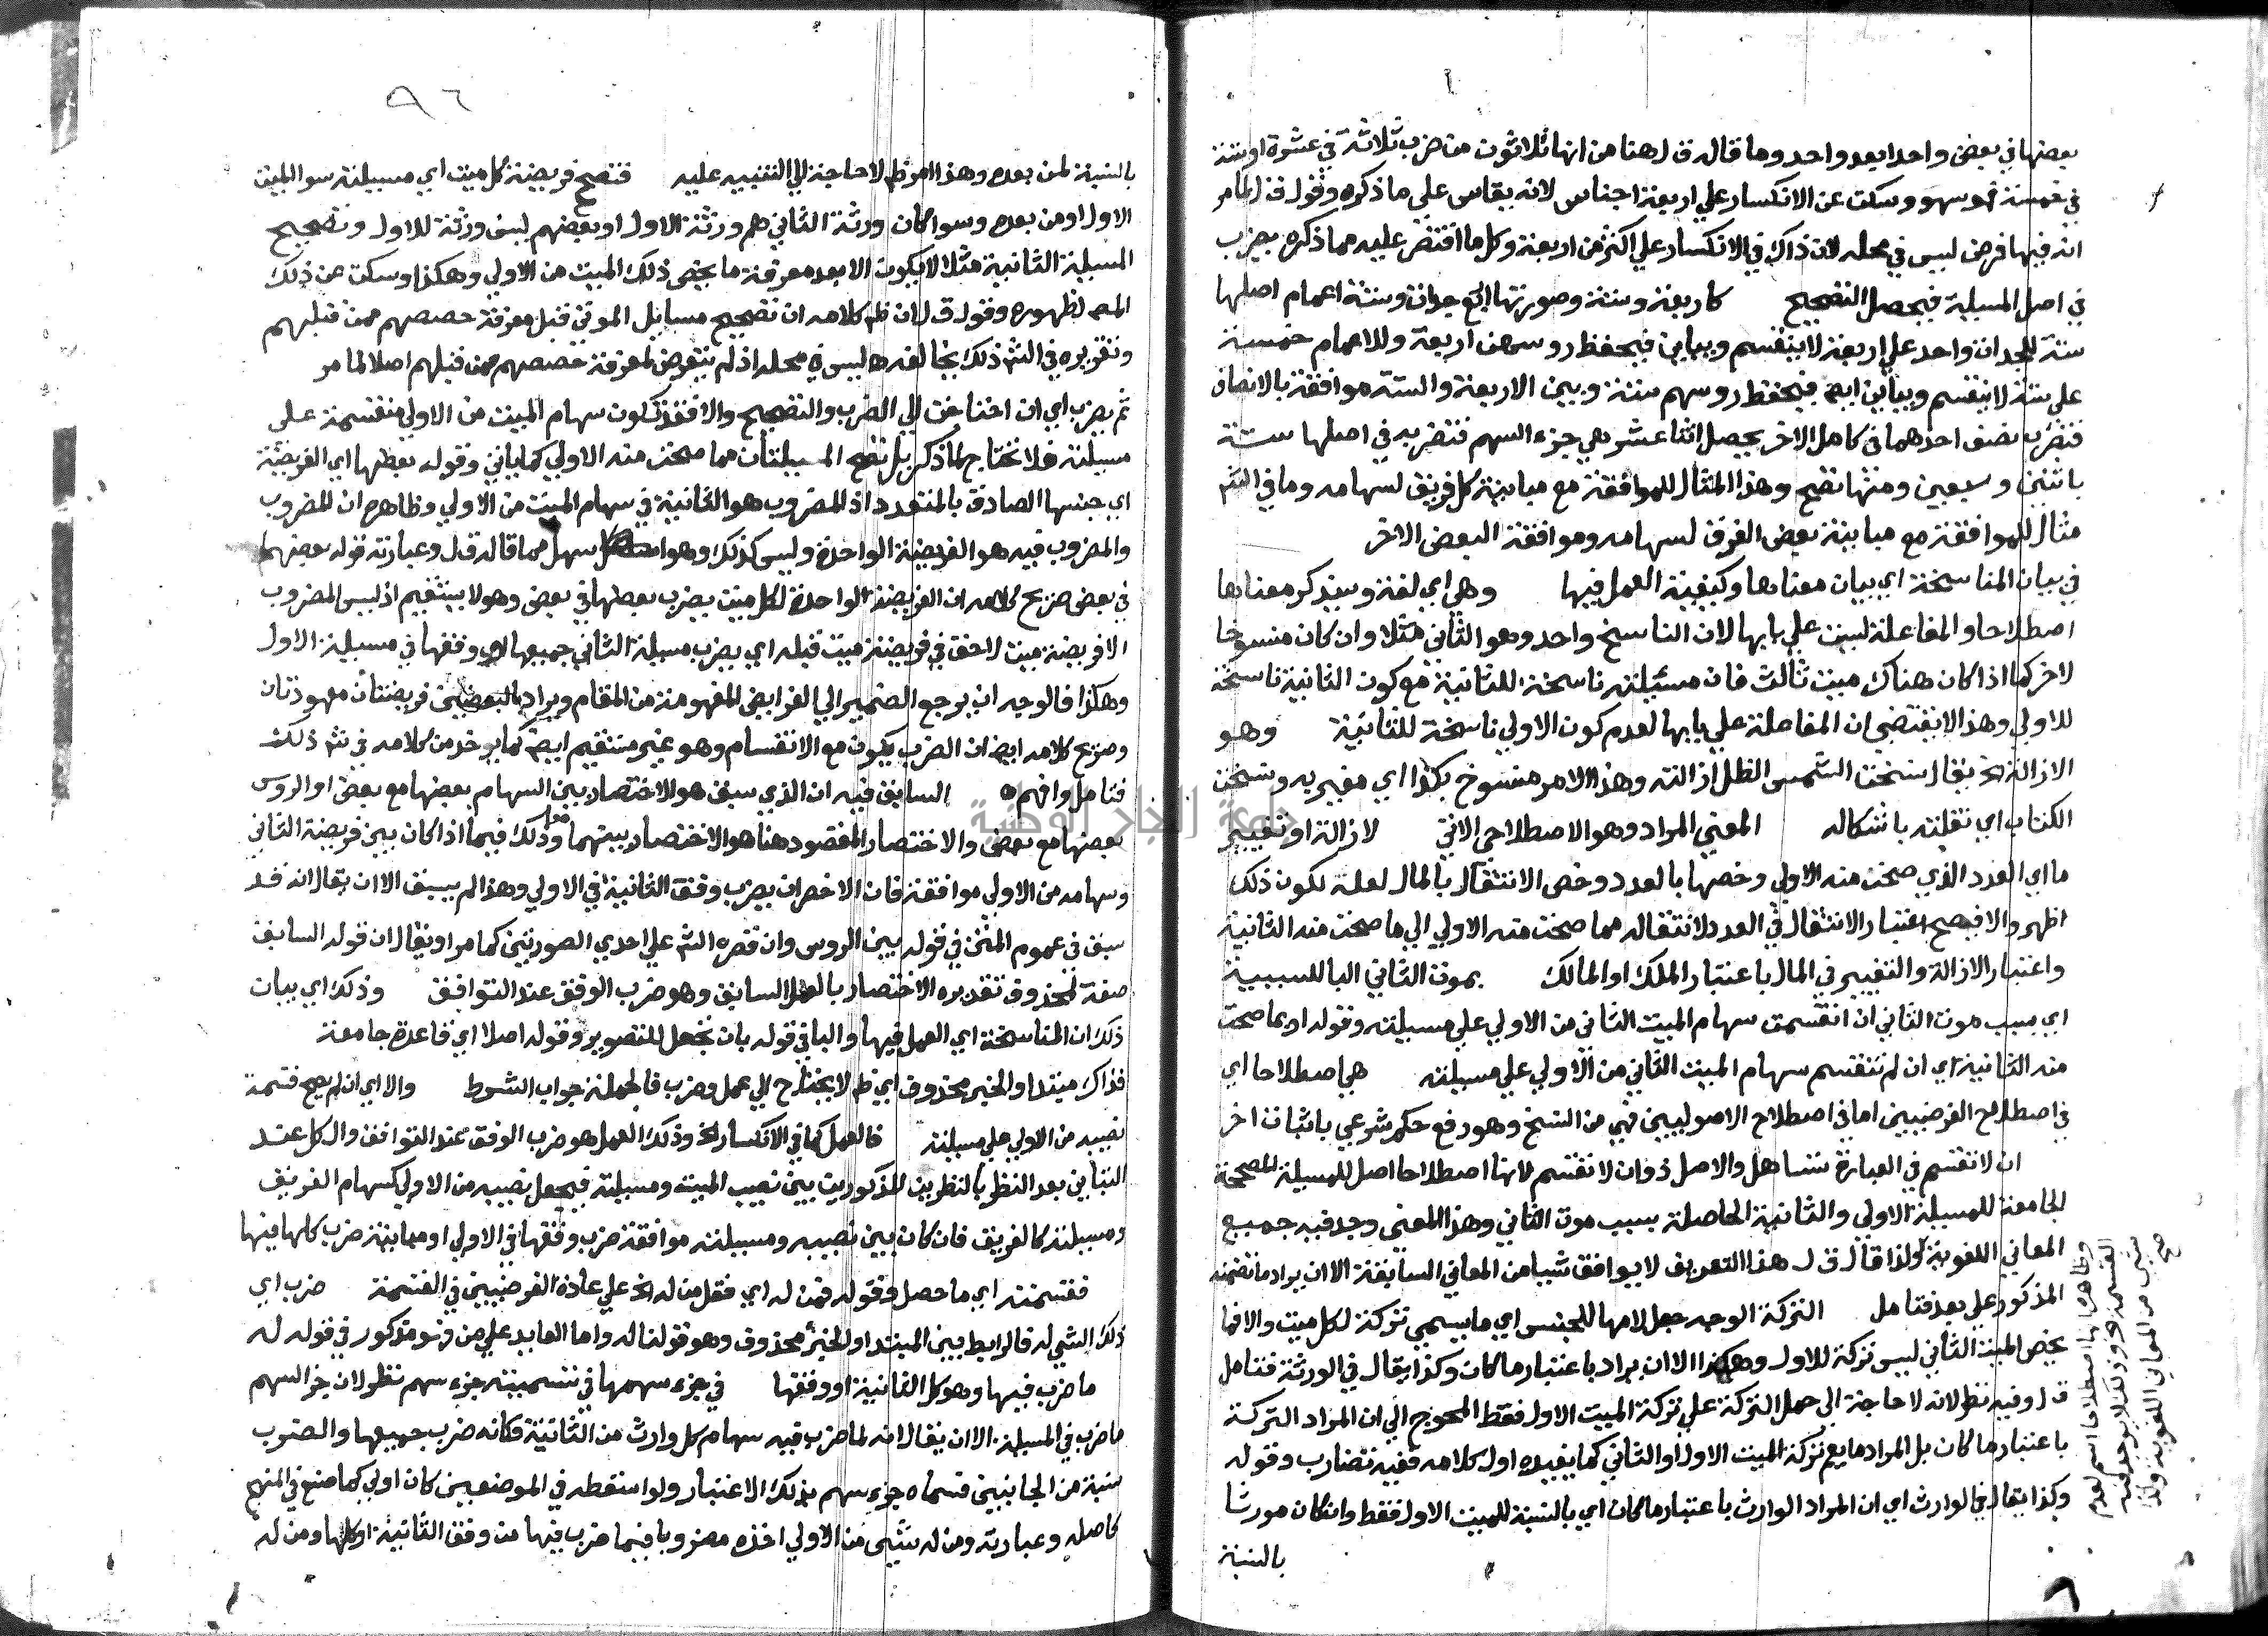 بعضها في بعض واحدا بعد واحد وما قاله ق ل هنا من انها ثلاثون من ضرب ثلاثة في عشرة او ستة
في خمسة فهو سهو وسكت عن الانكسار على اربعة اجناس لانه يقاس على ما ذكره وقول ق ل لما مر
انه فيها فرض ليس في محله لان ذاك في الانكسار على اكثر من اربعة وكل ما اقتصر عليه مما ذكره يضرب
في اصل المسيلة فيحصل التصحيح كاربعة وستة وصورتها اربع جدات وستة اعمام اصلها
ستة للجدات واحد على اربعة لا ينقسم ويباين فيحفظ روسهن اربعة وللاعمام خمسة
على ستة لا ينقسم ويباين ايضا فيحفظ روسهم ستة وبين الاربعة والستة موافقة بالانصاف
فتضرب نصف احدهما في كامل الاخر يحصل اثنا عشر هي جزء السهم فتضربه في اصلها ستة
باثنين وسبعين ومنها تصح وهذا المثال للموافقة مع مباينة كل فريق لسهامه وما في الشم
مثال للموافقة مع مباينة بعض الفرق لسهامه وموافقة البعض الاخر
في بيان المناسخة اي بيان معناها وكيفية العمل فيها وهي اي لغة وسيذكر معناها
اصطلاحا والمفاعلة ليست على بابها لان الناسخ واحد وهو الثاني مثلا وان كان منسوخا
لاخر كما اذا كان هناك ميت ثالث فان مسئلته ناسخة للثانية مع كون الثانية ناسخة
للاولي وهذا لا يقتضي ان المفاعلة على بابها لعدم كون الاولي ناسخة للثانية وهو
الازالة الخ يقال نسخت الشمس الظل ازالته وهذا الامر منسوخ بكذا اي مغير به ونسخت
الكتاب اي نقلته باشكاله المعني المراد وهو الاصطلاحي الاتي لازالة او تغيير
ما اي العدد الذي صحت منه الاولي وخصها بالعدد وخص الانتقال بالمال لعله لكون ذلك
اظهر والا فيصح اعتبار الانتقال في العدد لانتقاله مما صحت منه الاولي الي ما صحت منه الثانية
واعتبار الازالة والتغيير في المال باعتبار الملك او المالك بموت الثاني البا للسببية
اي بسبب موت الثاني ان انقسمت سهام الميت الثاني من الاولي على مسيلته وقوله او بما صحت
منه الثانية اي ان لم تنقسم سهام الميت الثاني من الاولي على مسيلته هي اصطلاحا اي
في اصطلاح الفرضيين اما في اصطلاح الاصوليين فهي من النسخ وهو رفع حكم شرعي باثبات اخر
ان لا تقسم في العبارة تساهل والاصل ذو ان لا تقسم لانها اصطلاحا اصل للمسيلة المصححة
الجامعة للمسيلة الاولي والثانية الحاصلة بسبب موت الثاني وهذا المعني وجد فيه جميع
المعاني اللغوية ولذا قال ق ل هذا التعريف لا يوافق شيا من المعاني السابقة الا ان يراد ما تضمنه
المذكور على بعد فتامل التركة الوجه جعل لامها للجنس اي ما يسمى تركة لكل ميت والا فما
يخص الميت الثاني ليس تركة للاول وهكذا الا ان يراد باعتبار ما كان وكذا يقال في الورثة فتامل
ق ل وفيه نظر لانه لا حاجة الى حمل التركة على تركة الميت الاول فقط المحوج الي ان المراد التركة
باعتبار ما كان بل المراد ما يعم تركة الميت الاول او الثاني كما يفيده اول كلامه ففيه تضارب وقوله
وكذا يقال في الوارث اي ان المراد الوارث باعتبار ما كان اي بالنسبة للميت الاول فقط وان كان مورثا
بالنسبة
وظاهر انها اصطلاحا اسم لعدم
القسمة وذلك لا يوجد فيه
شي من المعاني اللغوية ولذا
صح
٩٦
بالنسبة لمن بعده وهذا امر ظم لا حاجة الي التنبيه عليه فتصح فريضة كل ميت اي مسيلته سوا الميت
الاول او من بعده وسوا كان ورثة الثاني هم ورثة الاول او بعضهم ليس ورثة للاول وتصحيح
المسيلة الثانية مثلا لا يكون الا بعد معرفة ما يخص ذلك الميت من الاولي وهكذا وسكت عن ذلك
المص لظهوره وقول ق ل ان ظم كلامه ان تصحيح مسايل الموتى قبل معرفة حصصهم ممن قبلهم
وتقريره في الشم ذلك يخالفه ها ليس في محله اذ لم يتعرض لمعرفة حصصهم ممن قبلهم اصلا لما مر
ثم يضرب اي ان احتاجت الي الضرب والتصحيح والا فقد تكون سهام الميت من الاولي منقسمة على
مسيلته فلا تحتاج لما ذكر بل تصح المسيلتان مما صحت منه الاولي كما ياتي وقوله بعضها اي الفريضة
اي جنسها الصادق بالمتعدد اذ المضروب هو الثانية في سهام الميت من الاولي وظاهره ان المضروب
والمضروب فيه هو الفريضة الواحدة وليس كذلك وهو اسهل مما قاله ق ل وعبارته قوله بعضها
في بعض صريح كلامه ان الفريضة الواحدة لكل ميت يضرب بعضها في بعض وهو لا يستقيم اذ ليس المضروب
الا فريضة ميت لاحق في فريضة ميت قبله اي يضرب مسيلة الثاني جميعها او وفقها في مسيلة الاول
وهكذا فالوجه ان يرجع الضمير الي الفرايض المفهومة من المقام ويراد بالبعضين فريضتان معهودتان
وصريح كلامه ايضا ان الضرب يكون مع الانقسام وهو غير مستقيم ايضا كما يوخذ من كلامه في شم ذلك
فتامل وافهم السابق فيه ان الذي سبق هو الاختصار بين السهام بعضها مع بعض او الروس
بعضها مع بعض والاختصار المقصود هنا هو الاختصار بينهما وذلك فيما اذا كان بين فريضة الثاني
وسهامه من الاولي موافقة فان الاخصر ان يضرب وفق الثانية في الاولي وهذا لم يسبق الا ان يقال انه قد
سبق في عموم المتن في قوله بين الروس وان قصره الشم على احدي الصورتين كما مر او يقال ان قوله السابق
صفة لمحذوف تقديره الاختصار بالعمل السابق وهو ضرب الوفق عند التوافق وذلك اي بيان
ذلك ان المناسخة اي العمل فيها والبا في قوله بان تجعل للتصوير وقوله اصلا اي قاعدة جامعة
فذاك مبتدا والخبر محذوف اي ظم لا يحتاج الي عمل وضرب فالجملة جواب الشرط والا اي ان لم يصح قسمة
نصيبه من الاولي على مسيلته فالعمل كما في الانكسار الخ وذلك العمل هو ضرب الوفق عند التوافق والكل عند
التباين بعد النظر بالنظرين المذكورين بين نصيب الميت ومسيلته فيجعل نصيبه من الاولي كسهام الفريق
ومسيلته كالفريق فان كان بين نصيبه ومسيلته موافقة ضرب وفقها في الاولي او مباينة ضرب كلها فيها
فقسمته اي ما حصل وقوله فمن له اي فقل من له الخ على عادة الفرضيين في القسمة ضرب اي
ذلك الشي له فالرابط بين المبتدا والخبر محذوف وهو قولنا له واما العايد على من فهو مذكور في قوله له
ما ضرب فيها وهو كل الثانية او وفقها في جزء سهمها في تسميته جزء سهم نظر لان جزء السهم
ما ضرب في المسيلة الا ان يقال انه لما ضرب فيه سهام كل وارث من الثانية فكانه ضرب جميعها والضرب
نسبة من الجانبين فسماه جزء سهم بذلك الاعتبار ولو اسقطه في الموضعين كان اولي كما صنع في المنهج
كاصله وعبارته ومن له شيي من الاولي اخذه مضروبا فيما ضرب فيها من وفق الثانية او كلها ومن له